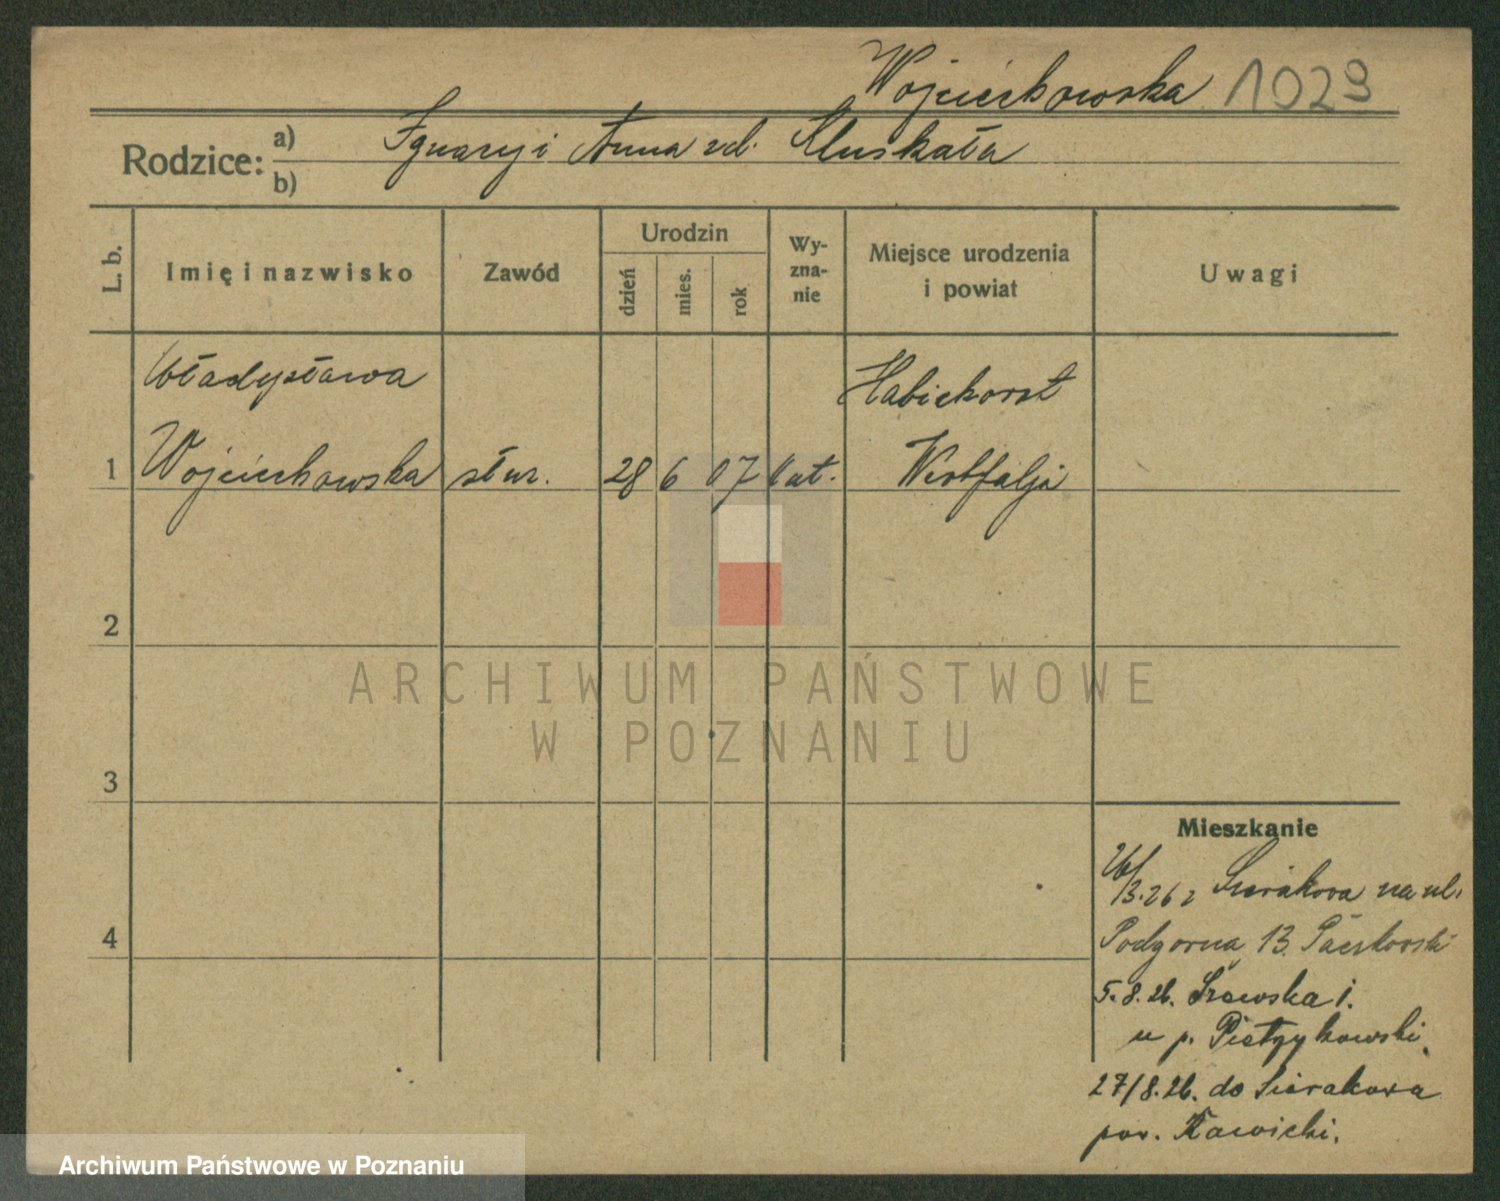 Wojciechowska 1029
Rodzice: a) Ignacy i Anna zd. Kluskała
b)
L. b. Imię i nazwisko Zawód Urodzin dzień mies. rok Wy-zna-nie Miejsce urodzenia i powiat Uwagi
Władysława Habichorst
1 Wojciechowska służ. 28 6 07 kat. Westfalja
2
3
4
Mieszkanie
/3.26 z Sierakowa na ul.
Podgorna 13. Paczkowski
5.8.26. Szewska 1.
u p. Pietrzykowski.
27/8.26. do Sierakowa
pow. Rawicki.
ARCHIWUM PAŃSTWOWE
W POZNANIU
Archiwum Państwowe w Poznaniu